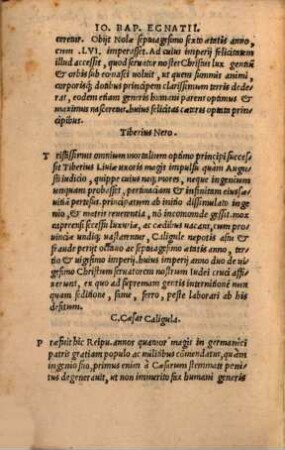 IO. BAP. EGNATII.
erretur. Obijt Nolæ septuagesimo sexto ætatis anno,
cum .LVI. imperasset. Ad cuius imperij felicitatem
illud accessit, quod seruator noster Christus lux gentiũ
& orbis sub eo nasci uoluit, ut quem summis animi,
corporisq́; dotibus principem clarissimum terris dede
rat, eodem etiam generis humani parens optimus &
maximus nasceretur. huius felicitas cæteris optata prin
cipibus.
Tiberius Nero.
Tristissimus omnium mortalium optimo principi succes
sit Tiberius Liuiæ uxoris magis impulsu quàm Augu
sti iudicio, quippe cuius neq; mores, neque ingenium
unquam probasset, pertinaciam & infinitam eius sæ
uitiam pertesus. principatum ab initio dissimulato inge
nio, & matris reuerentia, nõ incommode gessit. mox
asprens secessu luxuriæ, ac cædibus uacans, cum pro
uincia undiq; uastarentur, Caligulæ nepotis astu &
fraude opprimitur octauo ac septuagesimo ætatis anno,
& uigesimo imperij. huius imperij anno duo de ui
gesimo Christum seruatorem nostrum Iudei cruci affi
xerunt, ex quo ad supremam gentis internitionem nun
quam seditione, fame, ferro, peste laborari ab his
desitum.
C. Cæsar Caligula.
Præfuit hic Reipu. annos quatuor magis in germanici
patris gratiam populo ac militibus cõmendatus, quàm
ingenio suo, primus enim à Cæsarum stemmate peni
tus degenerauit, ut non immerito fax humani generis